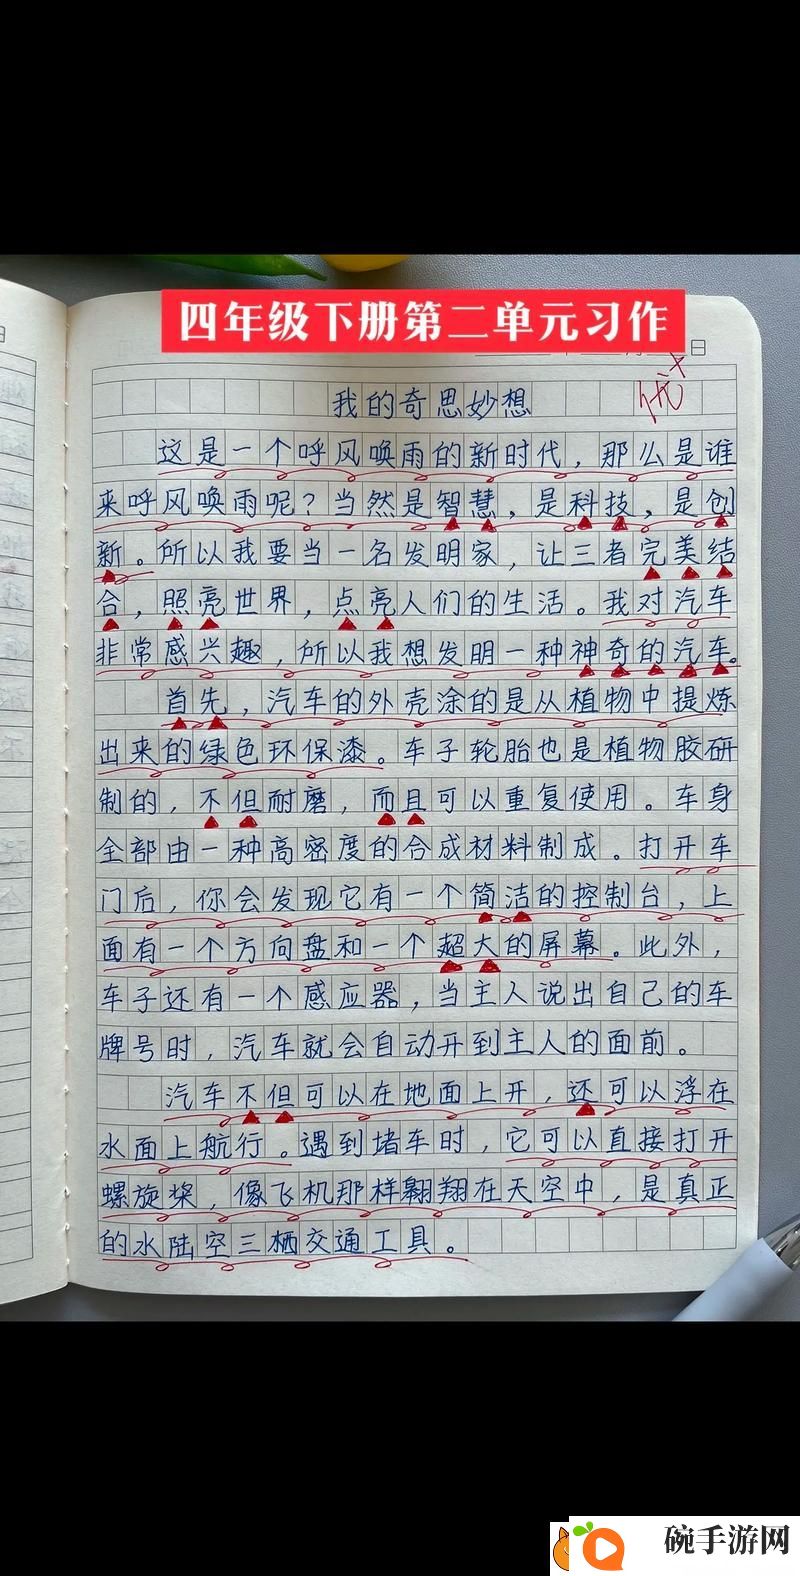 四年级下册第二单元习作
日
优+
我的奇思妙想
这是一个呼风唤雨的新时代，那么是谁
来呼风唤雨呢？当然是智慧，是科技，是创
新。所以我要当一名发明家，让三者完美结
合，照亮世界，点亮人们的生活。我对汽车
非常感兴趣，所以我想发明一种神奇的汽车。
首先，汽车的外壳涂的是从植物中提炼
出来的绿色环保漆。车子轮胎也是植物胶研
制的，不但耐磨，而且可以重复使用。车身
全部由一种高密度的合成材料制成。打开车
门后，你会发现它有一个简洁的控制台，上
面有一个方向盘和一个超大的屏幕。此外，
车子还有一个感应器，当主人说出自己的车
牌号时，汽车就会自动开到主人的面前。
汽车不但可以在地面上开，还可以浮在
水面上航行。遇到堵车时，它可以直接打开
螺旋桨，像飞机那样翱翔在天空中，是真正
的水陆空三栖交通工具。
碗手游网